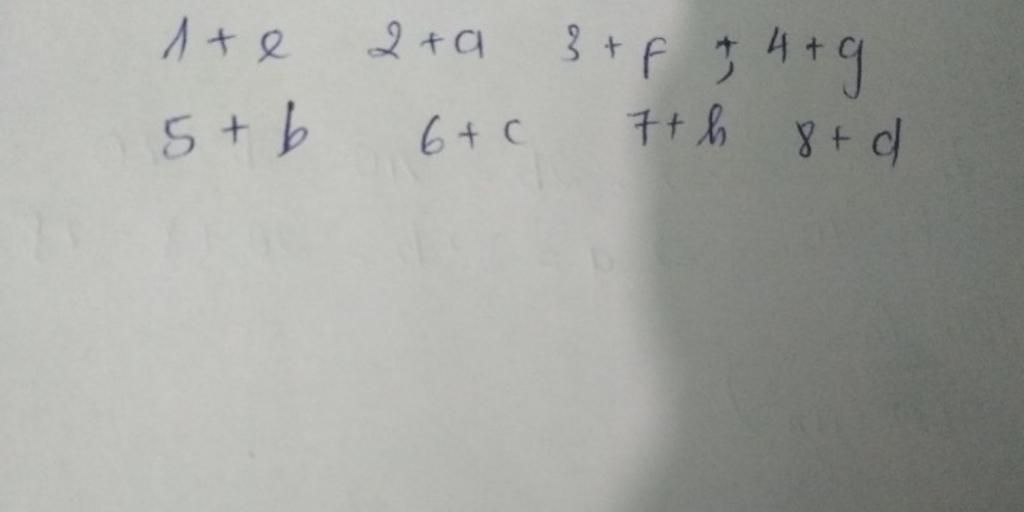 1 + e 2 + a 3 + f ; 4 + g
5 + b 6 + c 7 + h 8 + d